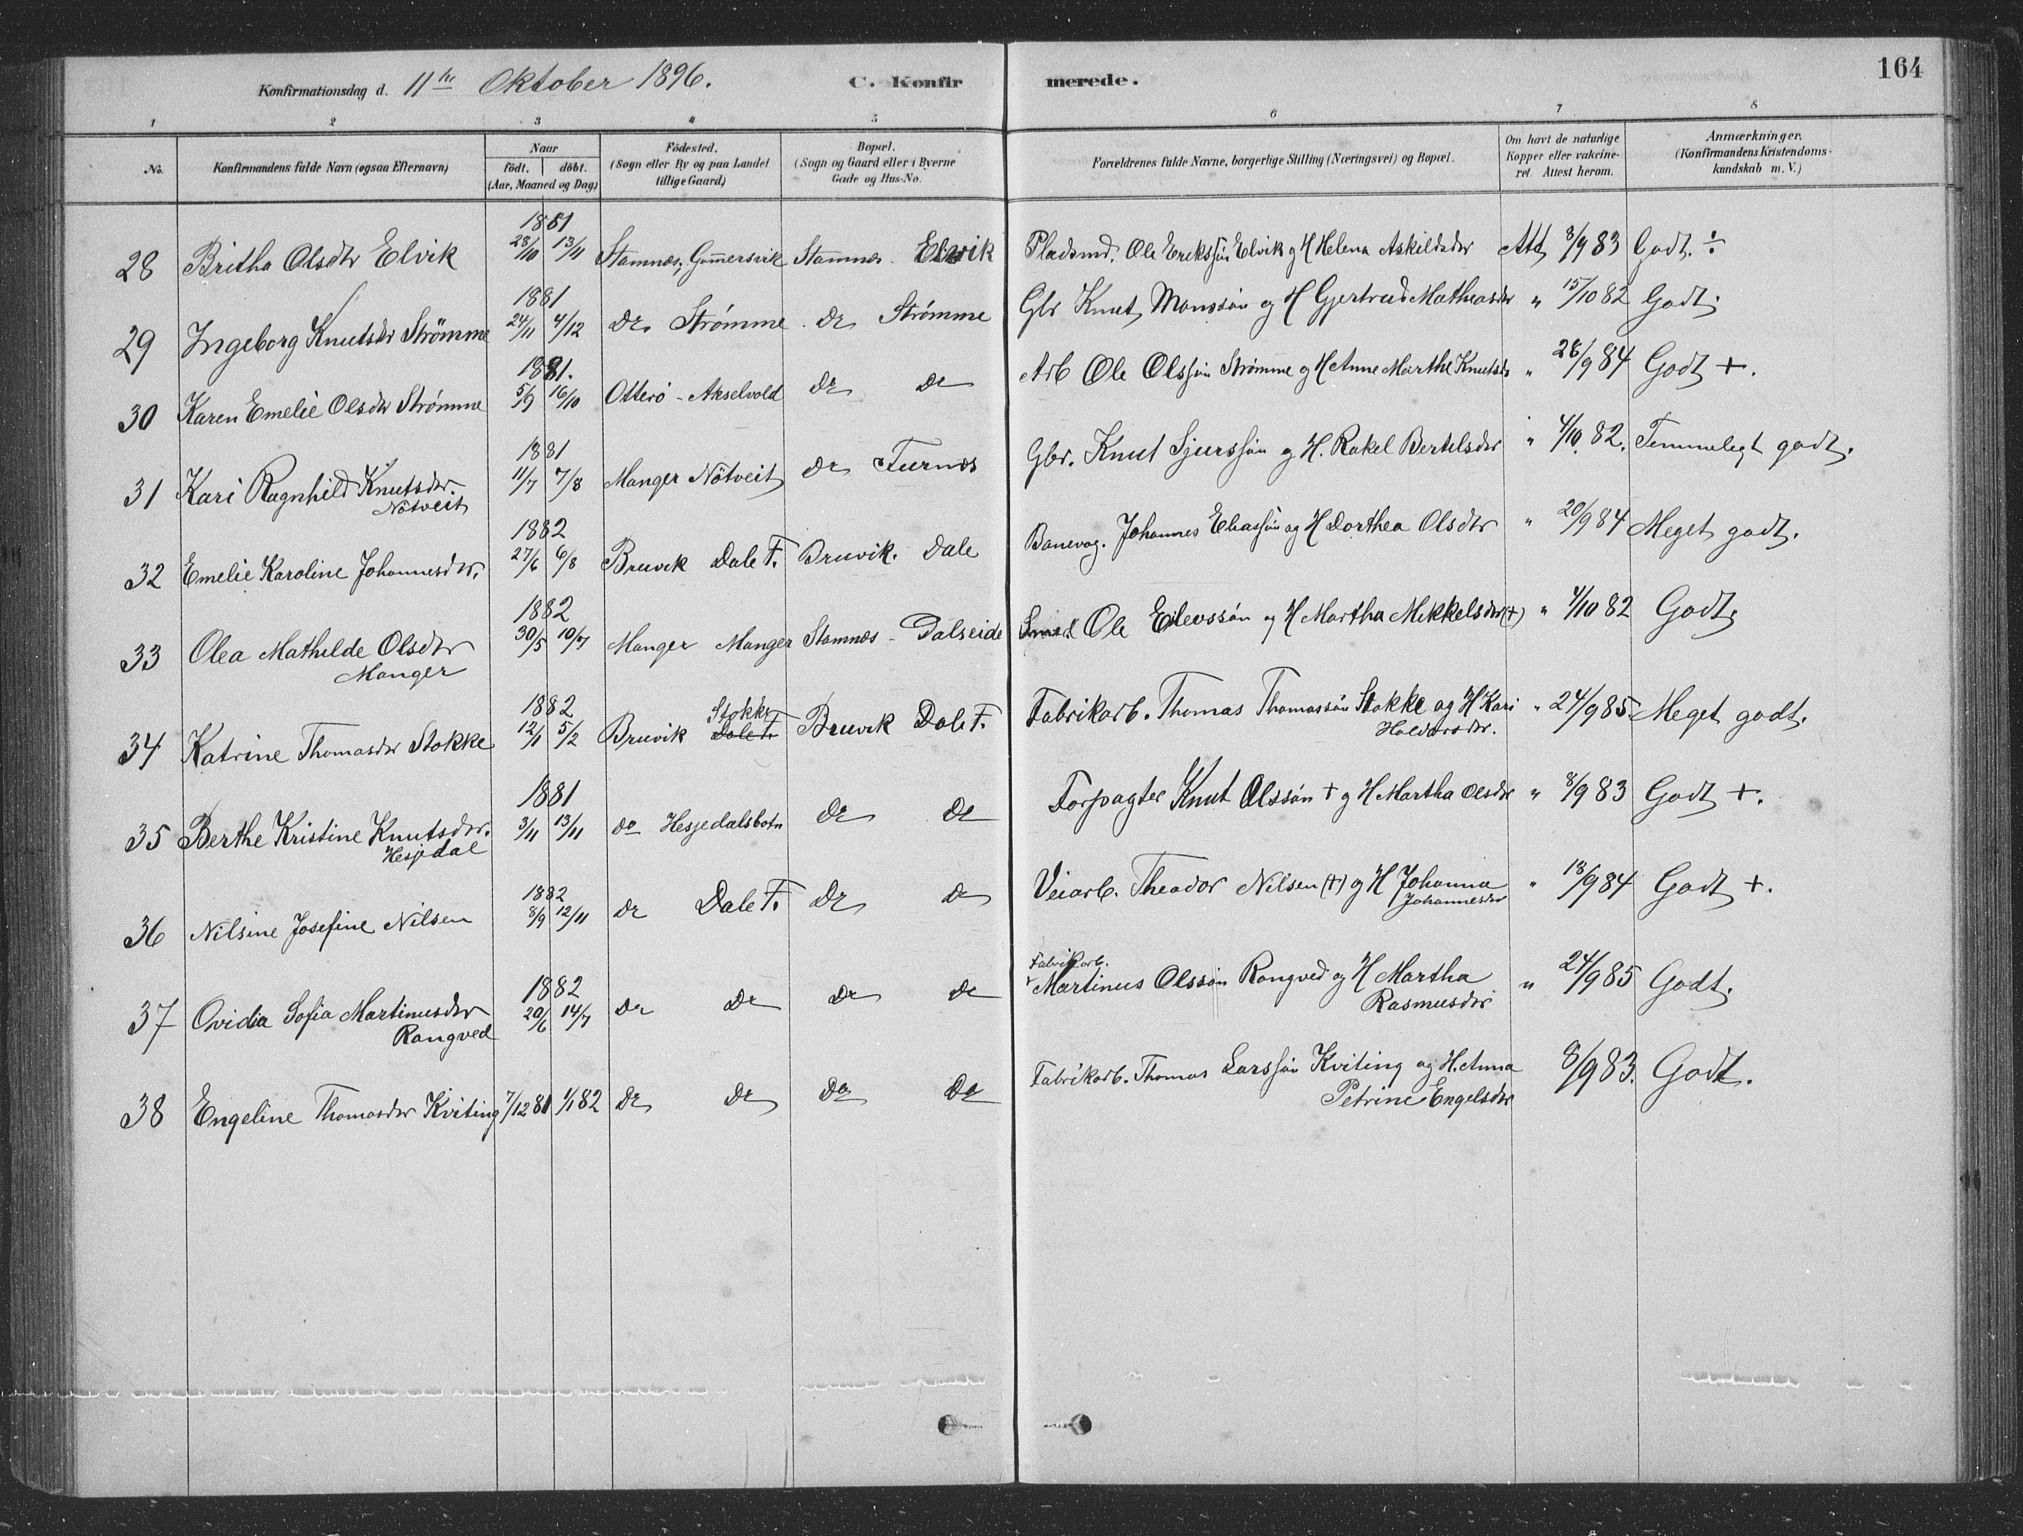 Konfirmationsdag d. 11te Oktober 1896. C. Konfirmerede. 164
1 2 3 4 5 6 7 8
No. Konfirmandens fulde Navn (ogsaa Efternavn) Naar födt. döbt. (Aar, Maaned og Dag) Födested. (Sogn eller By og paa Landet tillige Gaard) Bopæl. (Sogn og Gaard eller i Byerne Gade og Hus-No. Forældrenes fulde Navne, borgerlige Stilling (Næringsvei) og Bopæl. Om havt de naturlige Kopper eller vakcineret. Attest herom. Anmærkninger. (Konfirmandens Kristendomskundskab m. V.)
1881
28 Britha Olsdtr Elvik 28/10 13/11 Stamnes, Gommersvik Stamnes Elvik Pladsmd. Ole Erikssøn Elvik og H Helena Askildsdr Att 8/9 83 Godt. ÷
1881
29 Ingeborg Knutsdr Strømme 24/11 4/12 Do Strømme Do Strømme Gbr Knut Monssøn og H Gjertrud Mathiasdr " 15/10 82 Godt.
1881.
30 Karen Emelie Olsdtr Strømme 5/9 16/10 Otterø - Akselvold Do Do Arb Ole Olssøn Strømme og H Anne Marthe Knutsdr " 28/9 84 Godt +.
1881
31 Kari Ragnhild Knutsdtr. 11/7 7/8 Manger Nötveit Do Furnes Gbr. Knut Sjurssøn og H. Rakel Bertelsdtr " 4/10 82. Temmelegt godt.
Nötveit
1882
32 Emelie Karoline Johannesdtr. 27/6 6/8 Bruvik Dale F. Bruvik. Dale Banevog. Johannes Eliassøn og H Dorthea Olsdtr " 20/9 84 Meget godt.
1882
33 Olea Mathilde Olsdtr 30/5 10/7 Manger Manger Stamnes - Dalseide Smed Ole Eilevssøn og H Martha Mikkelsdtr (+) " 4/10 82 Godt.
Manger
1882
34 Katrine Thomasdtr Stokke 12/1 5/2 Bruvik Stokke Dale F. Bruvik Dale F. Fabrikarb. Thomas Thomassøn Stokke og H Kari " 24/9 85 Meget godt.
Halvorsdtr.
1881
35 Berthe Kristine Knutsdtr. 3/11 13/11 do Hesjedalsbotn Do Do Forpagter Knut Olssøn + og H Martha Olsdtr " 8/9 83 Godt +.
Hesjedal
1882
36 Nilsine Josefine Nilsen 8/9 12/11 Do Dale F. Do Do Veiarb. Theodor Nilsen (+) og H Johanna " 18/9 84 Godt +.
Johannesdtr
Fabrikarb.
1882
37 Ovidia Sofia Martinusdtr 20/6 14/7 Do Do Do Do Martinus Olssøn Rongved og H Martha " 24/9 85 Godt.
Rongved Rasmusdtr
38 Engeline Thomasdtr Kviting 7/12 81 1/1 82 Do Do Do Do Fabrikarb. Thomas Larssøn Kviting og H. Anna 8/9 83. Godt.
Petrine Engelsdtr